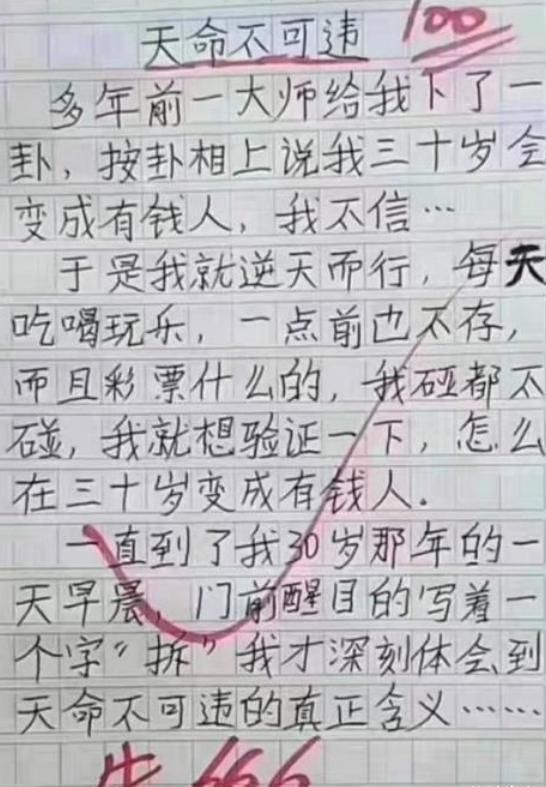 天命不可违
100
多年前一大师给我下了一
卦，按卦相上说我三十岁会
变成有钱人，我不信…
于是我就逆天而行，每天
吃喝玩乐，一点前也不存，
而且彩票什么的，我碰都不
碰，我就想验证一下，怎么
在三十岁变成有钱人．
一直到了我30岁那年的一
天早晨，门前醒目的写着一
个字“拆”我才深刻体会到
天命不可违的真正含义……
牛666